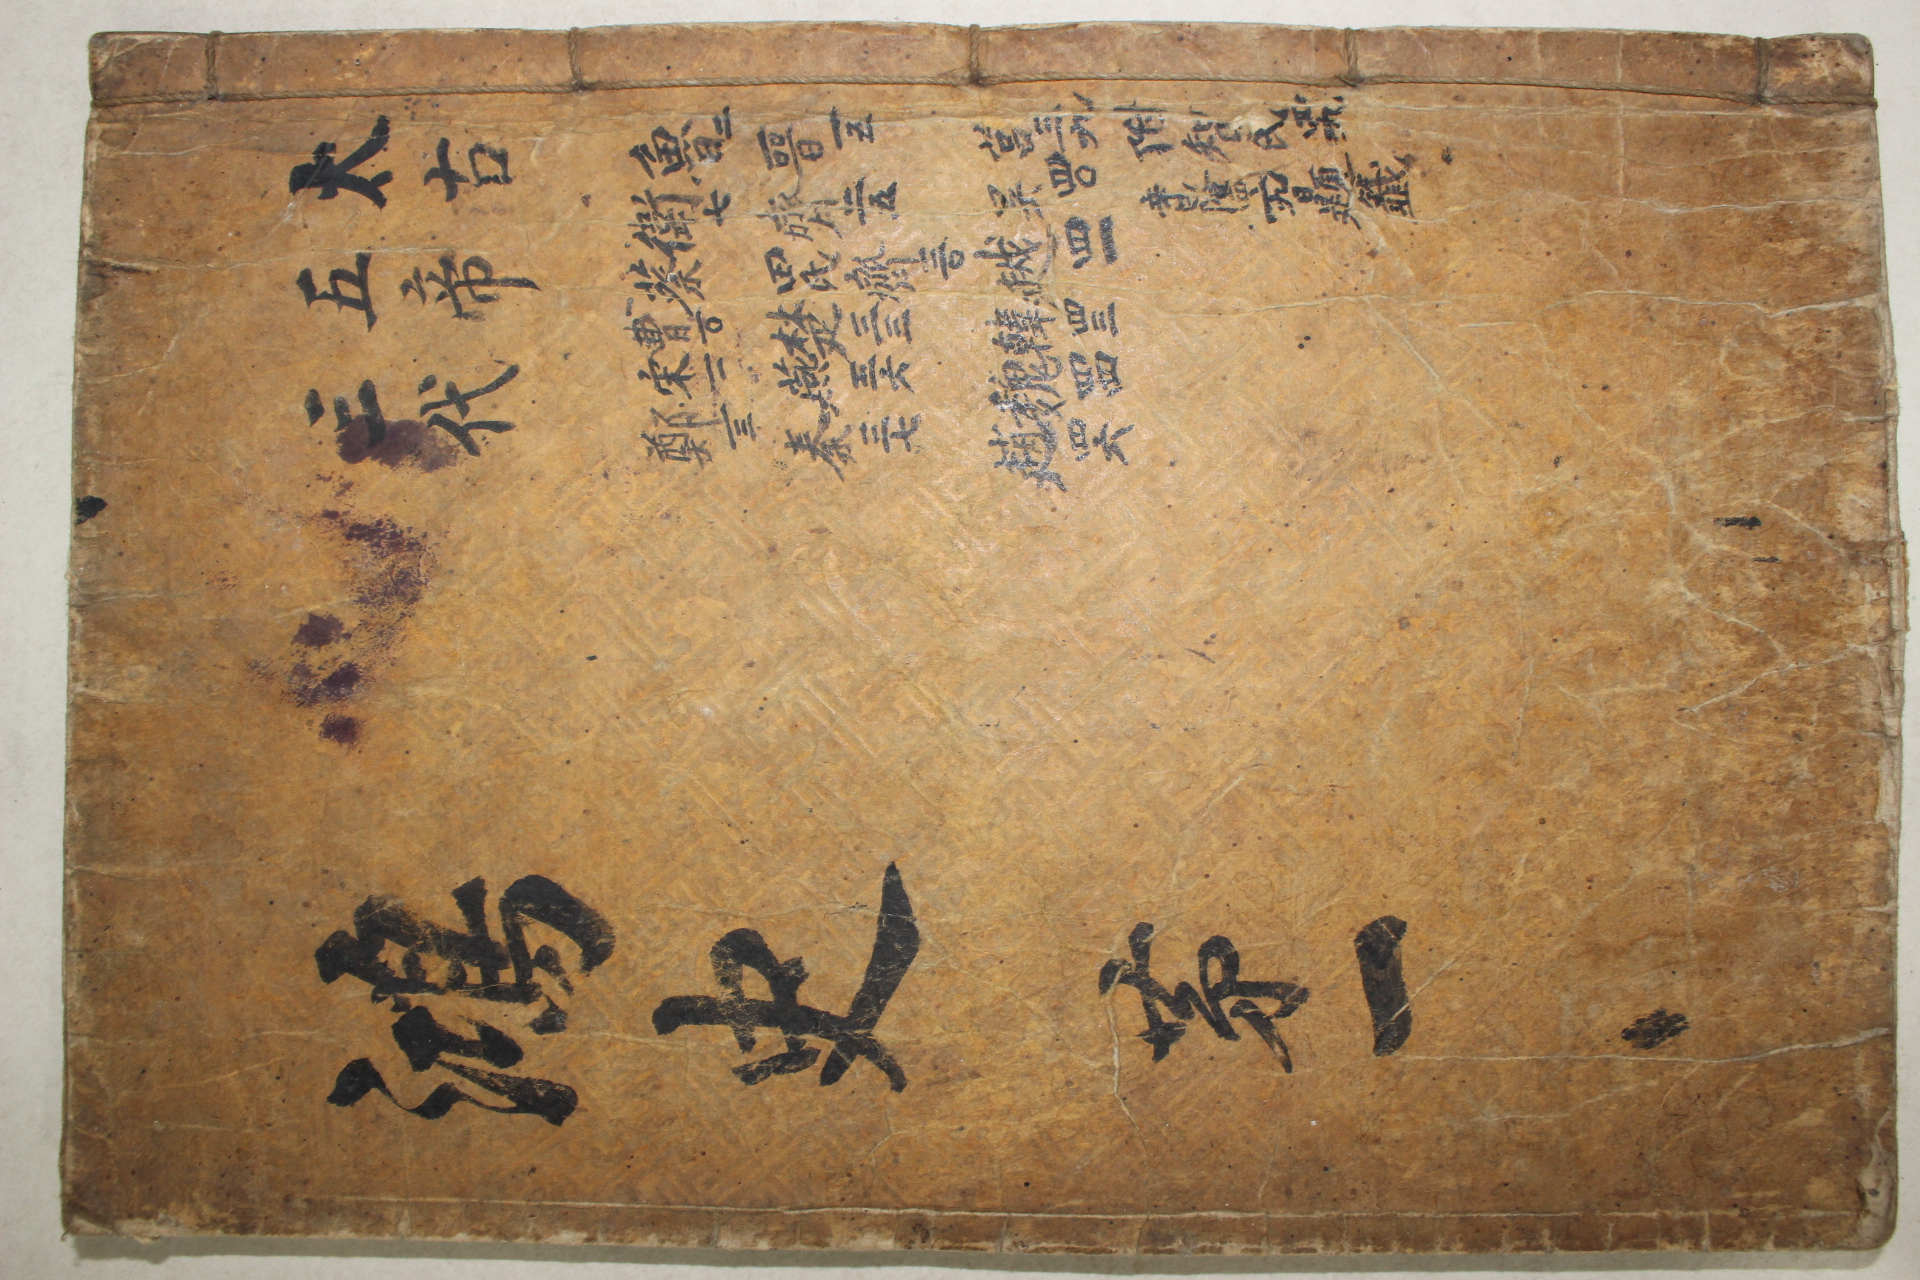 太古
五帝
三代
魯二
衛七
蔡
曹一〇
宋一二
鄭一三
晉一五
齊二五
田氏齊三〇
楚三三
燕三六
秦三七
莒三九
吳四〇
越四一
韓四三
魏四四
趙四六
附智氏
題籤
鴻史 苐一